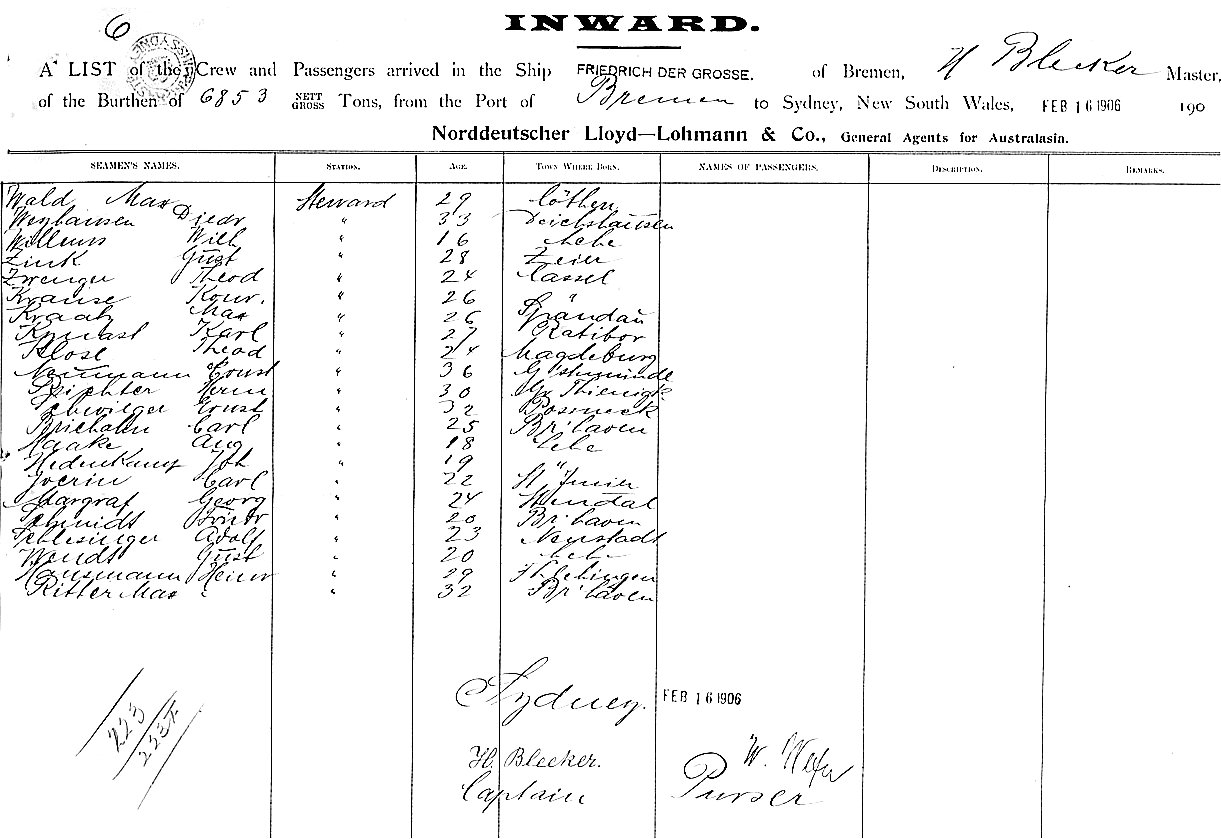 6
INWARD.
A LIST of the Crew and Passengers arrived in the Ship FRIEDRICH DER GROSSE. of Bremen, H Blecker Master,
of the Burthen of 6853 NETT GROSS Tons, from the Port of Bremen to Sydney, New South Wales, FEB 16 1906 190
Norddeutscher Lloyd—Lohmann & Co., General Agents for Australasia.
SEAMEN'S NAMES. STATION. AGE. TOWN WHERE BORN. NAMES OF PASSENGERS. DESCRIPTION. REMARKS.
Wald Max Steward 29 Cöthen
Weyhausen Diedr " 33 Deichshausen
Willems Wilh " 16 Lehe
Zink Gust " 28 Zeier
Zwenger Theod " 24 Cassel
Krause Konr. " 26 "
Kraatz Max " 26 Spandau
Knuast Karl " 27 Ratibor
Klose Theod " 24 Magdeburg
Neumann Ernst " 36 G'stemünde
Richter Herm " 30 Gr.
Ernst " 32 Possneck
Carl " 25 Br'haven
Haake Aug " 18 Lehe
Hedenkamp Joh " 19 "
Joerin Carl " 22 St
Margraf Georg " 24 Stendal
Schmidt " 20 Br'haven
Schlesinger Adolf " 23 Neustadt
Wendt Gust " 20 Lehe
Hausmann Heinr " 29
Ritter Max " 32 Br'haven
Sydney. FEB 16 1906
223
H. Blecker. W.
Captain Purser